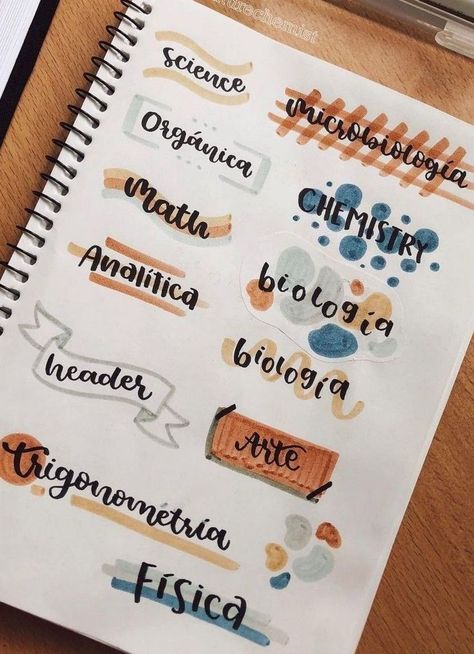 science
Orgánica
Math
Analítica
header
trigonometría
Física
microbiología
CHEMISTRY
biología
biología
Arte